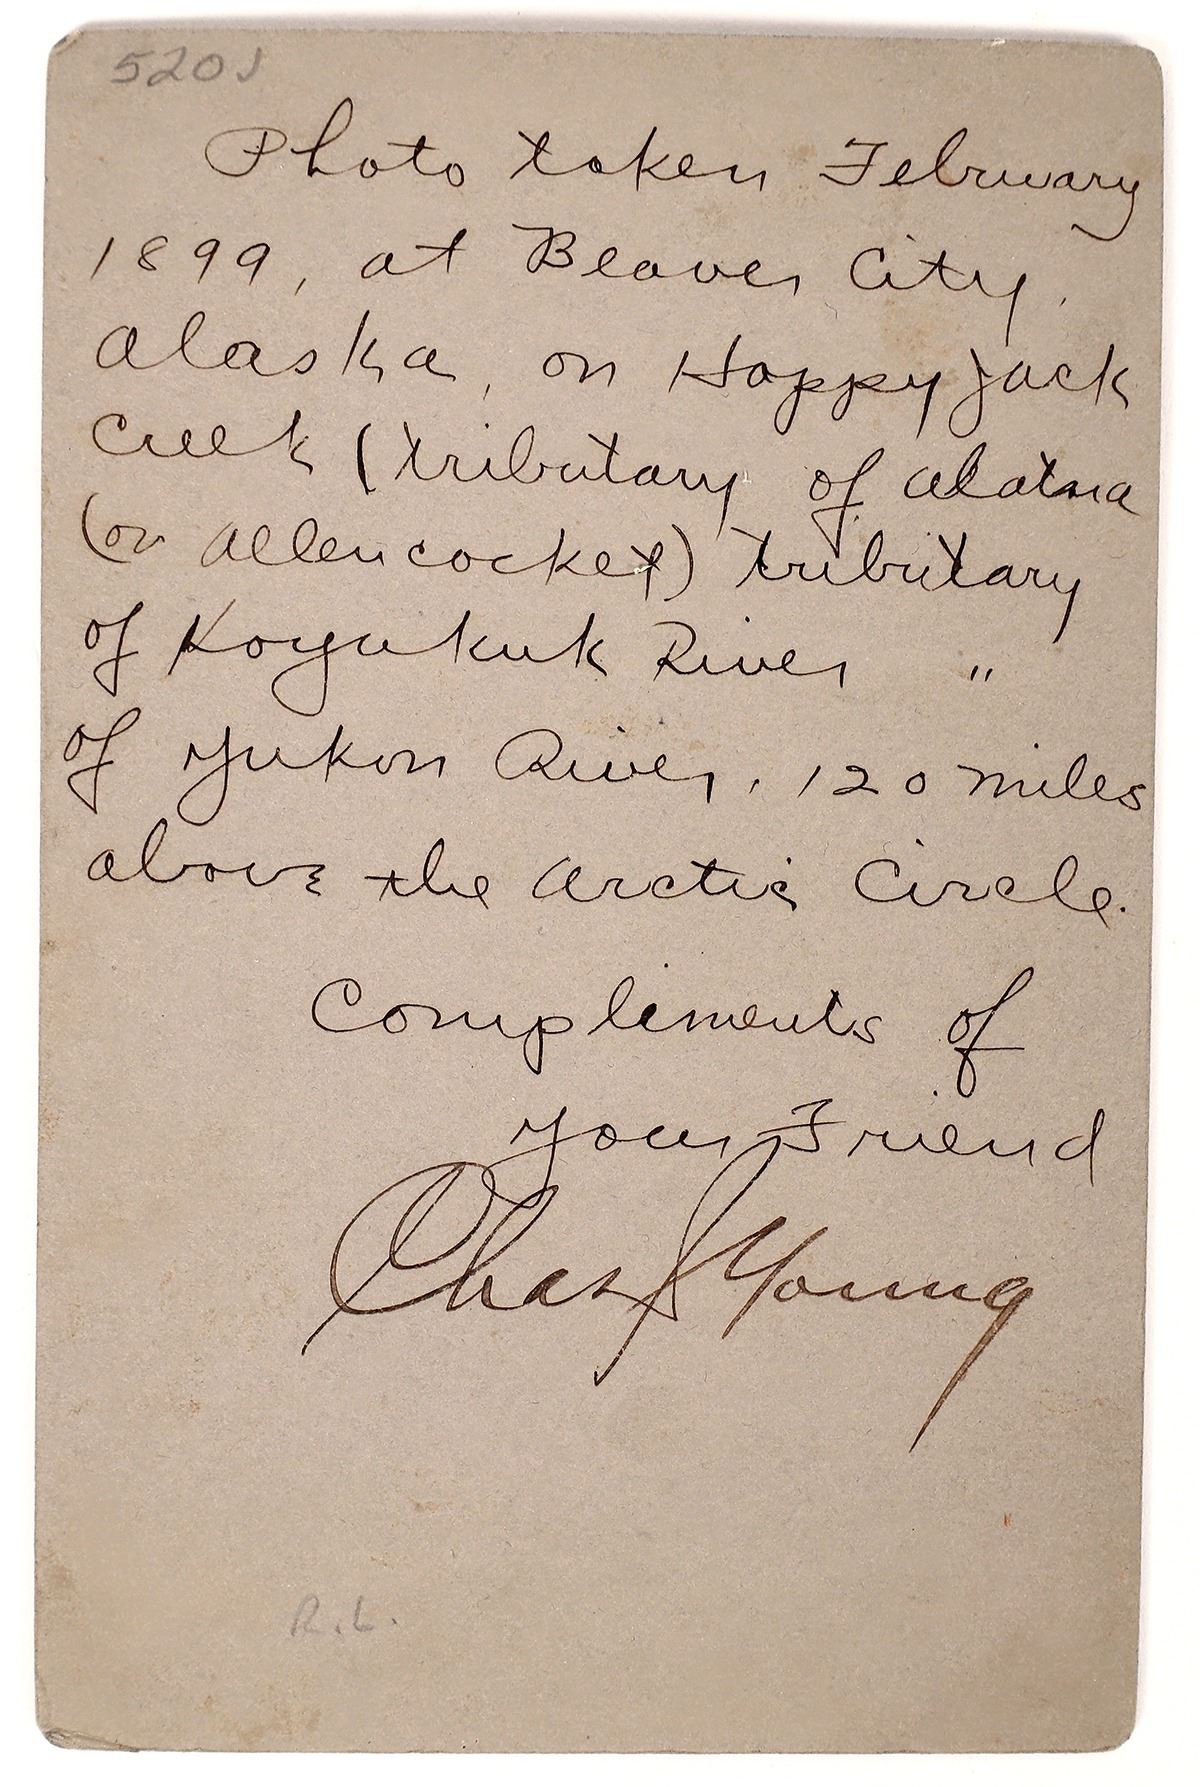 520J
Photo taken February
1899, at Beaver City,
Alaska, on Happy Jack
Creek (tributary of Alatna
(or Allencocket) tributary
of Koyukuk River "
of Yukon River, 120 miles
above the Arctic Circle.
Compliments of
your Friend
Chas S Young
R.L.